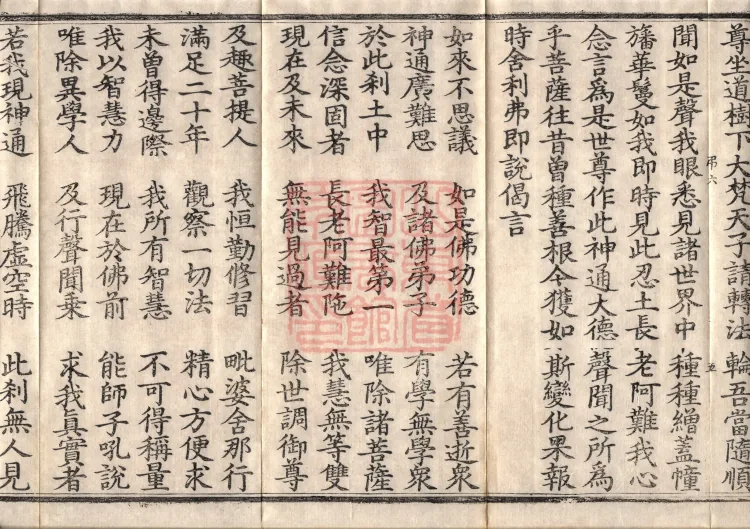 尊坐道樹下大梵天子請轉法輪吾當隨順
聞如是聲我眼悉見諸世界中種種繒蓋幢
旛華鬘如我即時見此忍土長老阿難我心
念言為是世尊作此神通大德聲聞之所為
乎菩薩往昔曾種善根今獲如斯變化果報
時舍利弗即說偈言
如來不思議 如是佛功德 若有善逝衆
神通廣難思 及諸佛弟子 有學無學衆
於此刹土中 我智最第一 唯除諸菩薩
信念深固者 長老阿難陁 我慧無等雙
現在及未來 無能見過者 除世調御尊
及趣菩提人 我恒勤修習 毗婆舍那行
滿足二十年 觀察一切法 精心方便求
未曾得邊際 我所有智慧 不可得稱量
我以智慧力 現在於佛前 能師子吼說
唯除異學人 及行聲聞乘 求我真實者
若我現神通 飛騰虛空時 此刹無人見